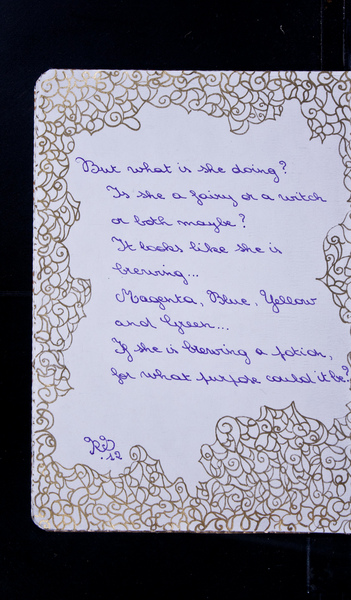 But what is she doing?
Is she a fairy or a witch
or both maybe?
It looks like she is
brewing...
Magenta, Blue, Yellow
and Green...
If she is brewing a potion,
for what purpose could it be?
RD
.12